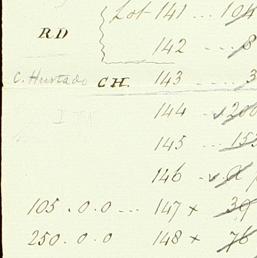 Lot 141 ... 104
RD
142 ... 8
C. Hurtado CH. 143 .... 3
144 ... 200
145 ... 153
146
105.0.0 ... 147 x 39
250.0.0 148 x 76